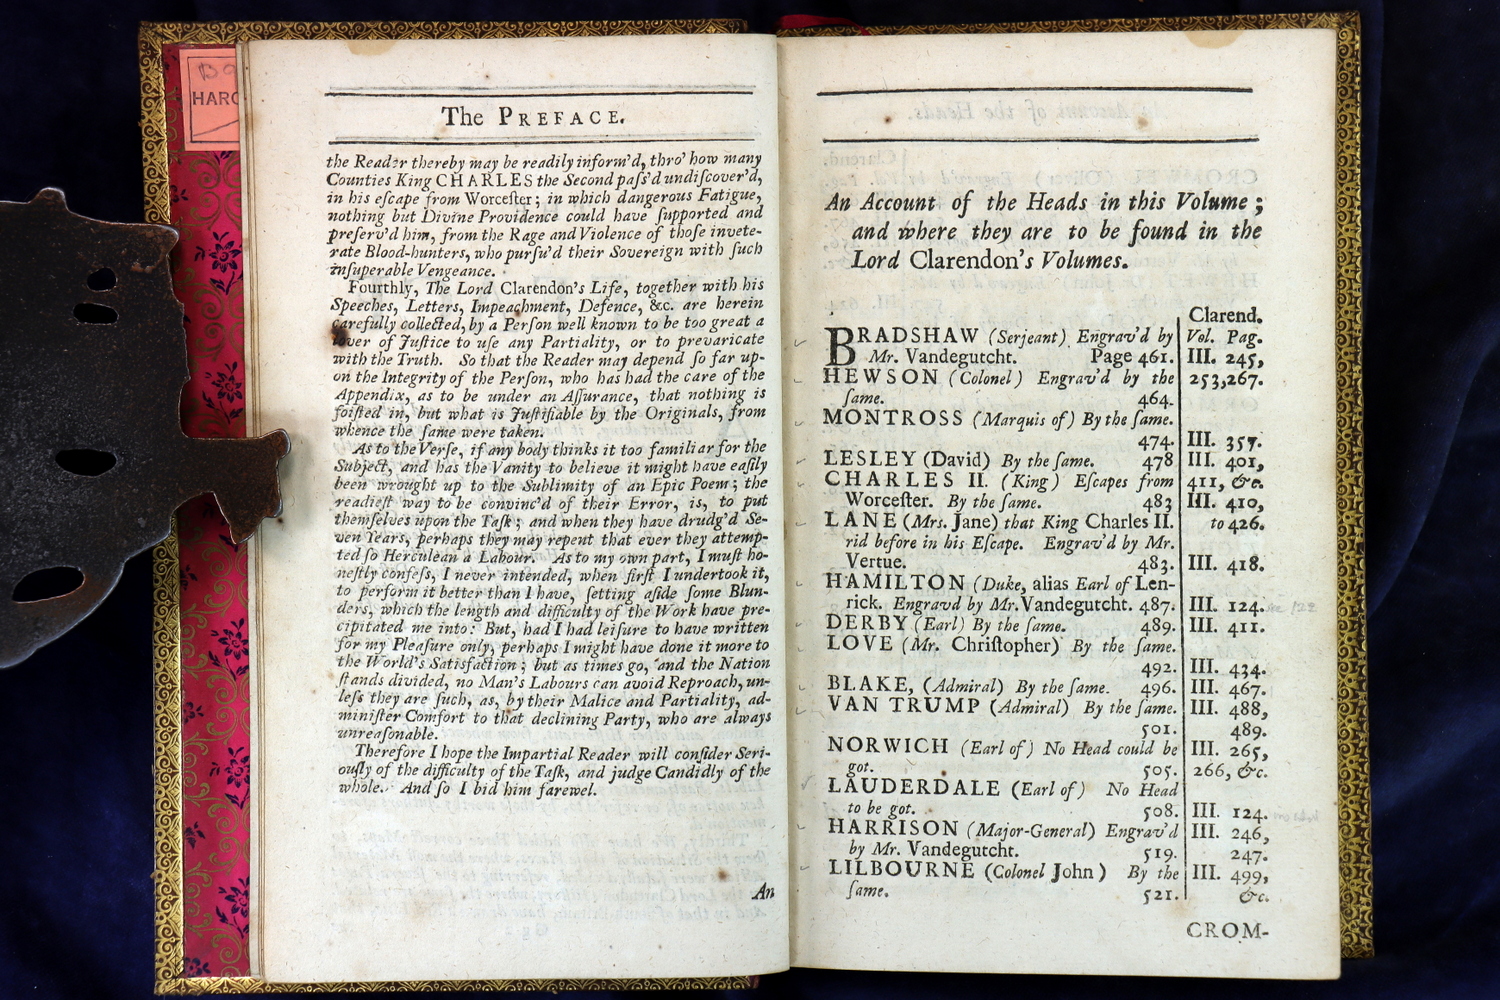 HARC
The PREFACE.
the Reader thereby may be readily inform'd, thro' how many
Counties King CHARLES the Second paſs'd undiſcover'd,
in his eſcape from Worceſter; in which dangerous Fatigue,
nothing but Divine Providence could have ſupported and
preſerv'd him, from the Rage and Violence of thoſe invete-
rate Blood-hunters, who purſu'd their Sovereign with ſuch
inſuperable Vengeance.
Fourthly, The Lord Clarendon's Life, together with his
Speeches, Letters, Impeachment, Defence, &c. are herein
carefully collected, by a Perſon well known to be too great a
lover of Juſtice to uſe any Partiality, or to prevaricate
with the Truth. So that the Reader may depend ſo far up-
on the Integrity of the Perſon, who has had the care of the
Appendix, as to be under an Aſſurance, that nothing is
foiſted in, but what is Juſtifiable by the Originals, from
whence the ſame were taken.
As to the Verſe, if any body thinks it too familiar for the
Subject, and has the Vanity to believe it might have eaſily
been wrought up to the Sublimity of an Epic Poem; the
readieſt way to be convinc'd of their Error, is, to put
themſelves upon the Taſk; and when they have drudg'd Se-
ven Years, perhaps they may repent that ever they attemp-
ted ſo Herculean a Labour. As to my own part, I muſt ho-
neſtly confeſs, I never intended, when firſt I undertook it,
to perform it better than I have, ſetting aſide ſome Blun-
ders, which the length and difficulty of the Work have pre-
cipitated me into: But, had I had leiſure to have written
for my Pleaſure only, perhaps I might have done it more to
the World's Satisfaction; but as times go, and the Nation
ſtands divided, no Man's Labours can avoid Reproach, un-
leſs they are ſuch, as, by their Malice and Partiality, ad-
miniſter Comfort to that declining Party, who are always
unreaſonable.
Therefore I hope the Impartial Reader will conſider Seri-
ouſly of the difficulty of the Taſk, and judge Candidly of the
whole. And ſo I bid him farewel.
An
An Account of the Heads in this Volume;
and where they are to be found in the
Lord Clarendon's Volumes.
Clarend.
BRADSHAW (Serjeant) Engrav'd by Vol. Pag.
Mr. Vandegutcht. Page 461. III. 245,
HEWSON (Colonel) Engrav'd by the 253,267.
ſame. 464.
MONTROSS (Marquis of) By the ſame.
474. III. 357.
LESLEY (David) By the ſame. 478 III. 401,
CHARLES II. (King) Eſcapes from 411, &c.
Worceſter. By the ſame. 483 III. 410,
LANE (Mrs. Jane) that King Charles II. to 426.
rid before in his Eſcape. Engrav'd by Mr.
Vertue. 483. III. 418.
HAMILTON (Duke, alias Earl of Len-
rick. Engrav'd by Mr. Vandegutcht. 487. III. 124.
DERBY (Earl) By the ſame. 489. III. 411.
LOVE (Mr. Chriſtopher) By the ſame.
492. III. 434.
BLAKE, (Admiral) By the ſame. 496. III. 467.
VAN TRUMP (Admiral) By the ſame. III. 488,
501. 489.
NORWICH (Earl of) No Head could be III. 265,
got. 505. 266, &c.
LAUDERDALE (Earl of) No Head
to be got. 508. III. 124.
HARRISON (Major-General) Engrav'd III. 246,
by Mr. Vandegutcht. 519. 247.
LILBOURNE (Colonel John) By the III. 499,
ſame. 521. &c.
CROM-